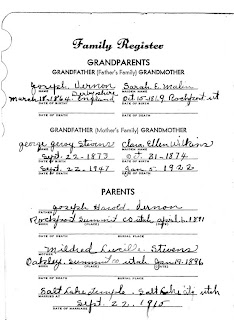 Family Register
GRANDPARENTS
GRANDFATHER (Father's Family) GRANDMOTHER
Joseph Vernon Sarah E. Malin
Derbyshire
March 18-1864 England Oct 10-1869 Rockport ut
DATE OF BIRTH DATE OF BIRTH
DATE OF DEATH DATE OF DEATH
GRANDFATHER (Mother's Family) GRANDMOTHER
george Stevens Clara Ellen Wilkins
Sept. 22-1873 Oct. 31-1874
DATE OF BIRTH DATE OF BIRTH
Sept. 22-1947 Jan. 5-1922
DATE OF DEATH DATE OF DEATH
PARENTS
Joseph Harold Vernon
FATHER
Rockport Summit Co. utah april 6, 1891
DATE OF DEATH BURIAL PLACE
Mildred Lucille Stevens
Oakley, Summit Co utah Jan 19-1896
DATE OF DEATH BURIAL PLACE
Salt Lake Temple. Salt Lake City, utah
MARRIED AT
Sept. 22, 1915